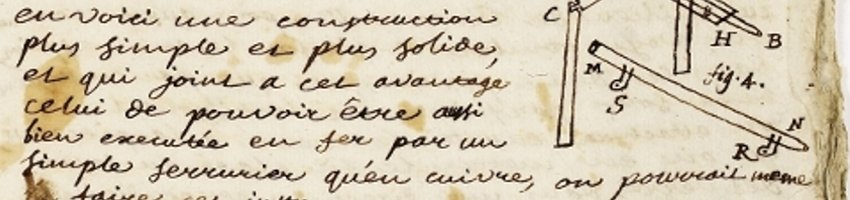 en voici une construction
plus simple et plus solide,
et qui joint a cet avantage
celui de pouvoir être aussi
bien executée en fer par un
simple serrurier qu'en cuivre, on pourrait meme
faire
C
H
B
fig. 4.
M
S
N
R